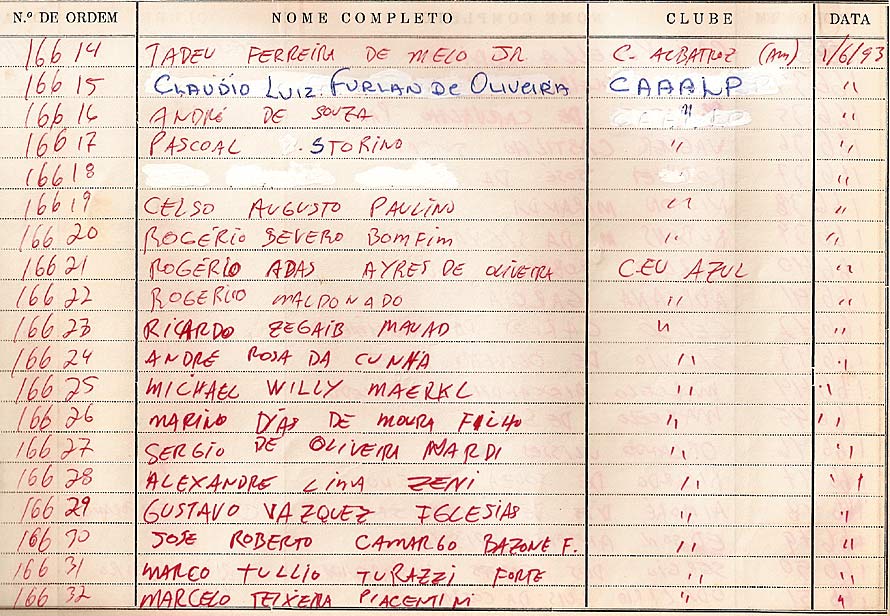 N.º DE ORDEM NOME COMPLETO CLUBE DATA
166 14 TADEU FERREIRA DE MELO JR C. ALBATROZ (Am) 1/6/93
166 15 CLAUDIO LUIZ FURLAN DE OLIVEIRA CAAALP "
166 16 ANDRÉ DE SOUZA " "
166 17 PASCOAL STORINO " "
166 18 " "
166 19 CELSO AUGUSTO PAULINO " "
166 20 ROGÉRIO SEVERO BOMFIM " "
166 21 ROGÉRIO ADAS AYRES DE OLIVEIRA CEU AZUL "
166 22 ROGERIO MALDONADO " "
166 23 RICARDO ZEGAIB MAUAD " "
166 24 ANDRE ROSA DA CUNHA " "
166 25 MICHAEL WILLY MAERKL " "
166 26 MARINO DIAS DE MOURA FILHO " "
166 27 SERGIO DE OLIVEIRA NARDI " "
166 28 ALEXANDRE LIMA ZENI " "
166 29 GUSTAVO VAZQUEZ IGLESIAS " "
166 30 JOSE ROBERTO CAMARGO BAZONE F. " "
166 31 MARCO TULLIO TURAZZI FORTE " "
166 32 MARCELO TEIXEIRA PIACENTINI " "